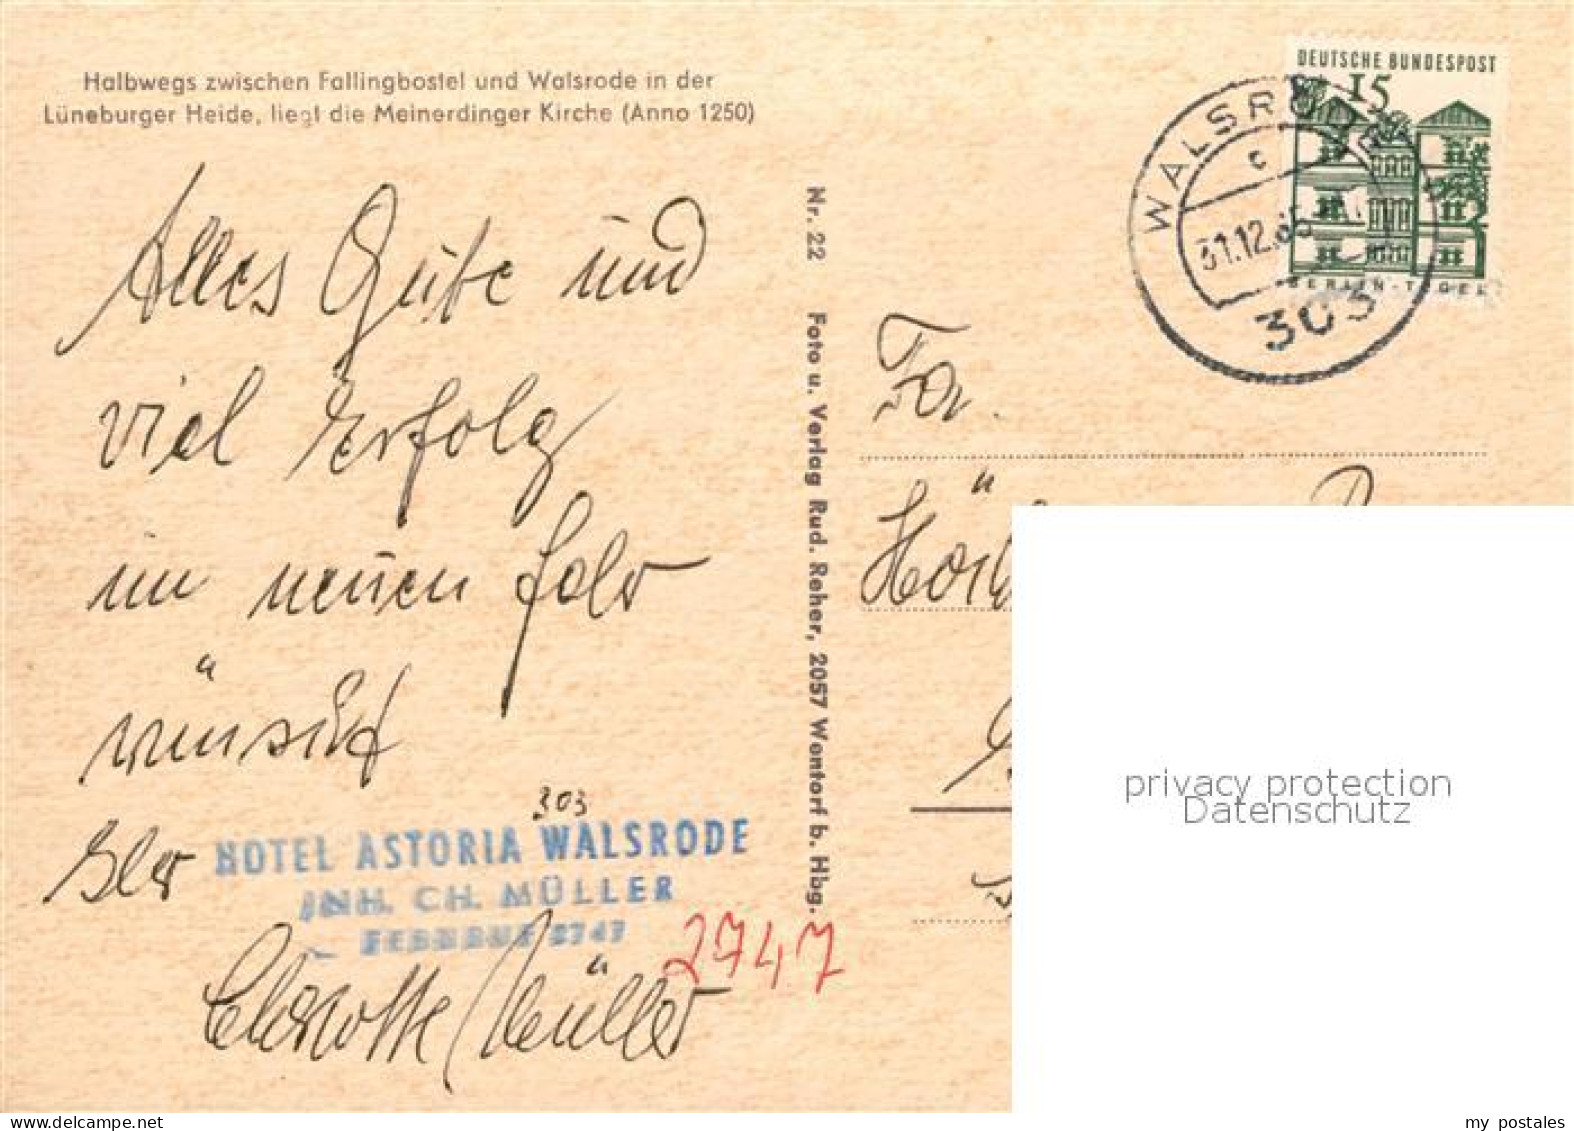 Halbwegs zwischen Fallingbostel und Walsrode in der
Lüneburger Heide, liegt die Meinerdinger Kirche (Anno 1250)
Alles Gute und
viel Erfolg
im neuen Jahr
wünscht
Ihr
303
HOTEL ASTORIA WALSRODE
INH. CH. MÜLLER
FERNRUF 2747
2747
Charlotte Müller
Nr. 22 Foto u. Verlag Rud. Reher, 2057 Wentorf b. Hbg.
DEUTSCHE BUNDESPOST
15
BERLIN-TEGEL
WALSRODE
c
31.12.65
303
Fa.
privacy protection
Datenschutz
my postales